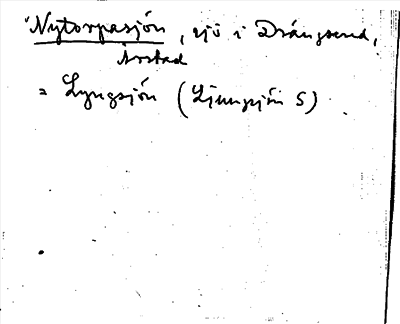 Nytorpasjön, sjö i Drängsered,
Årstad
= Lyngsjön (Ljungsjön S)